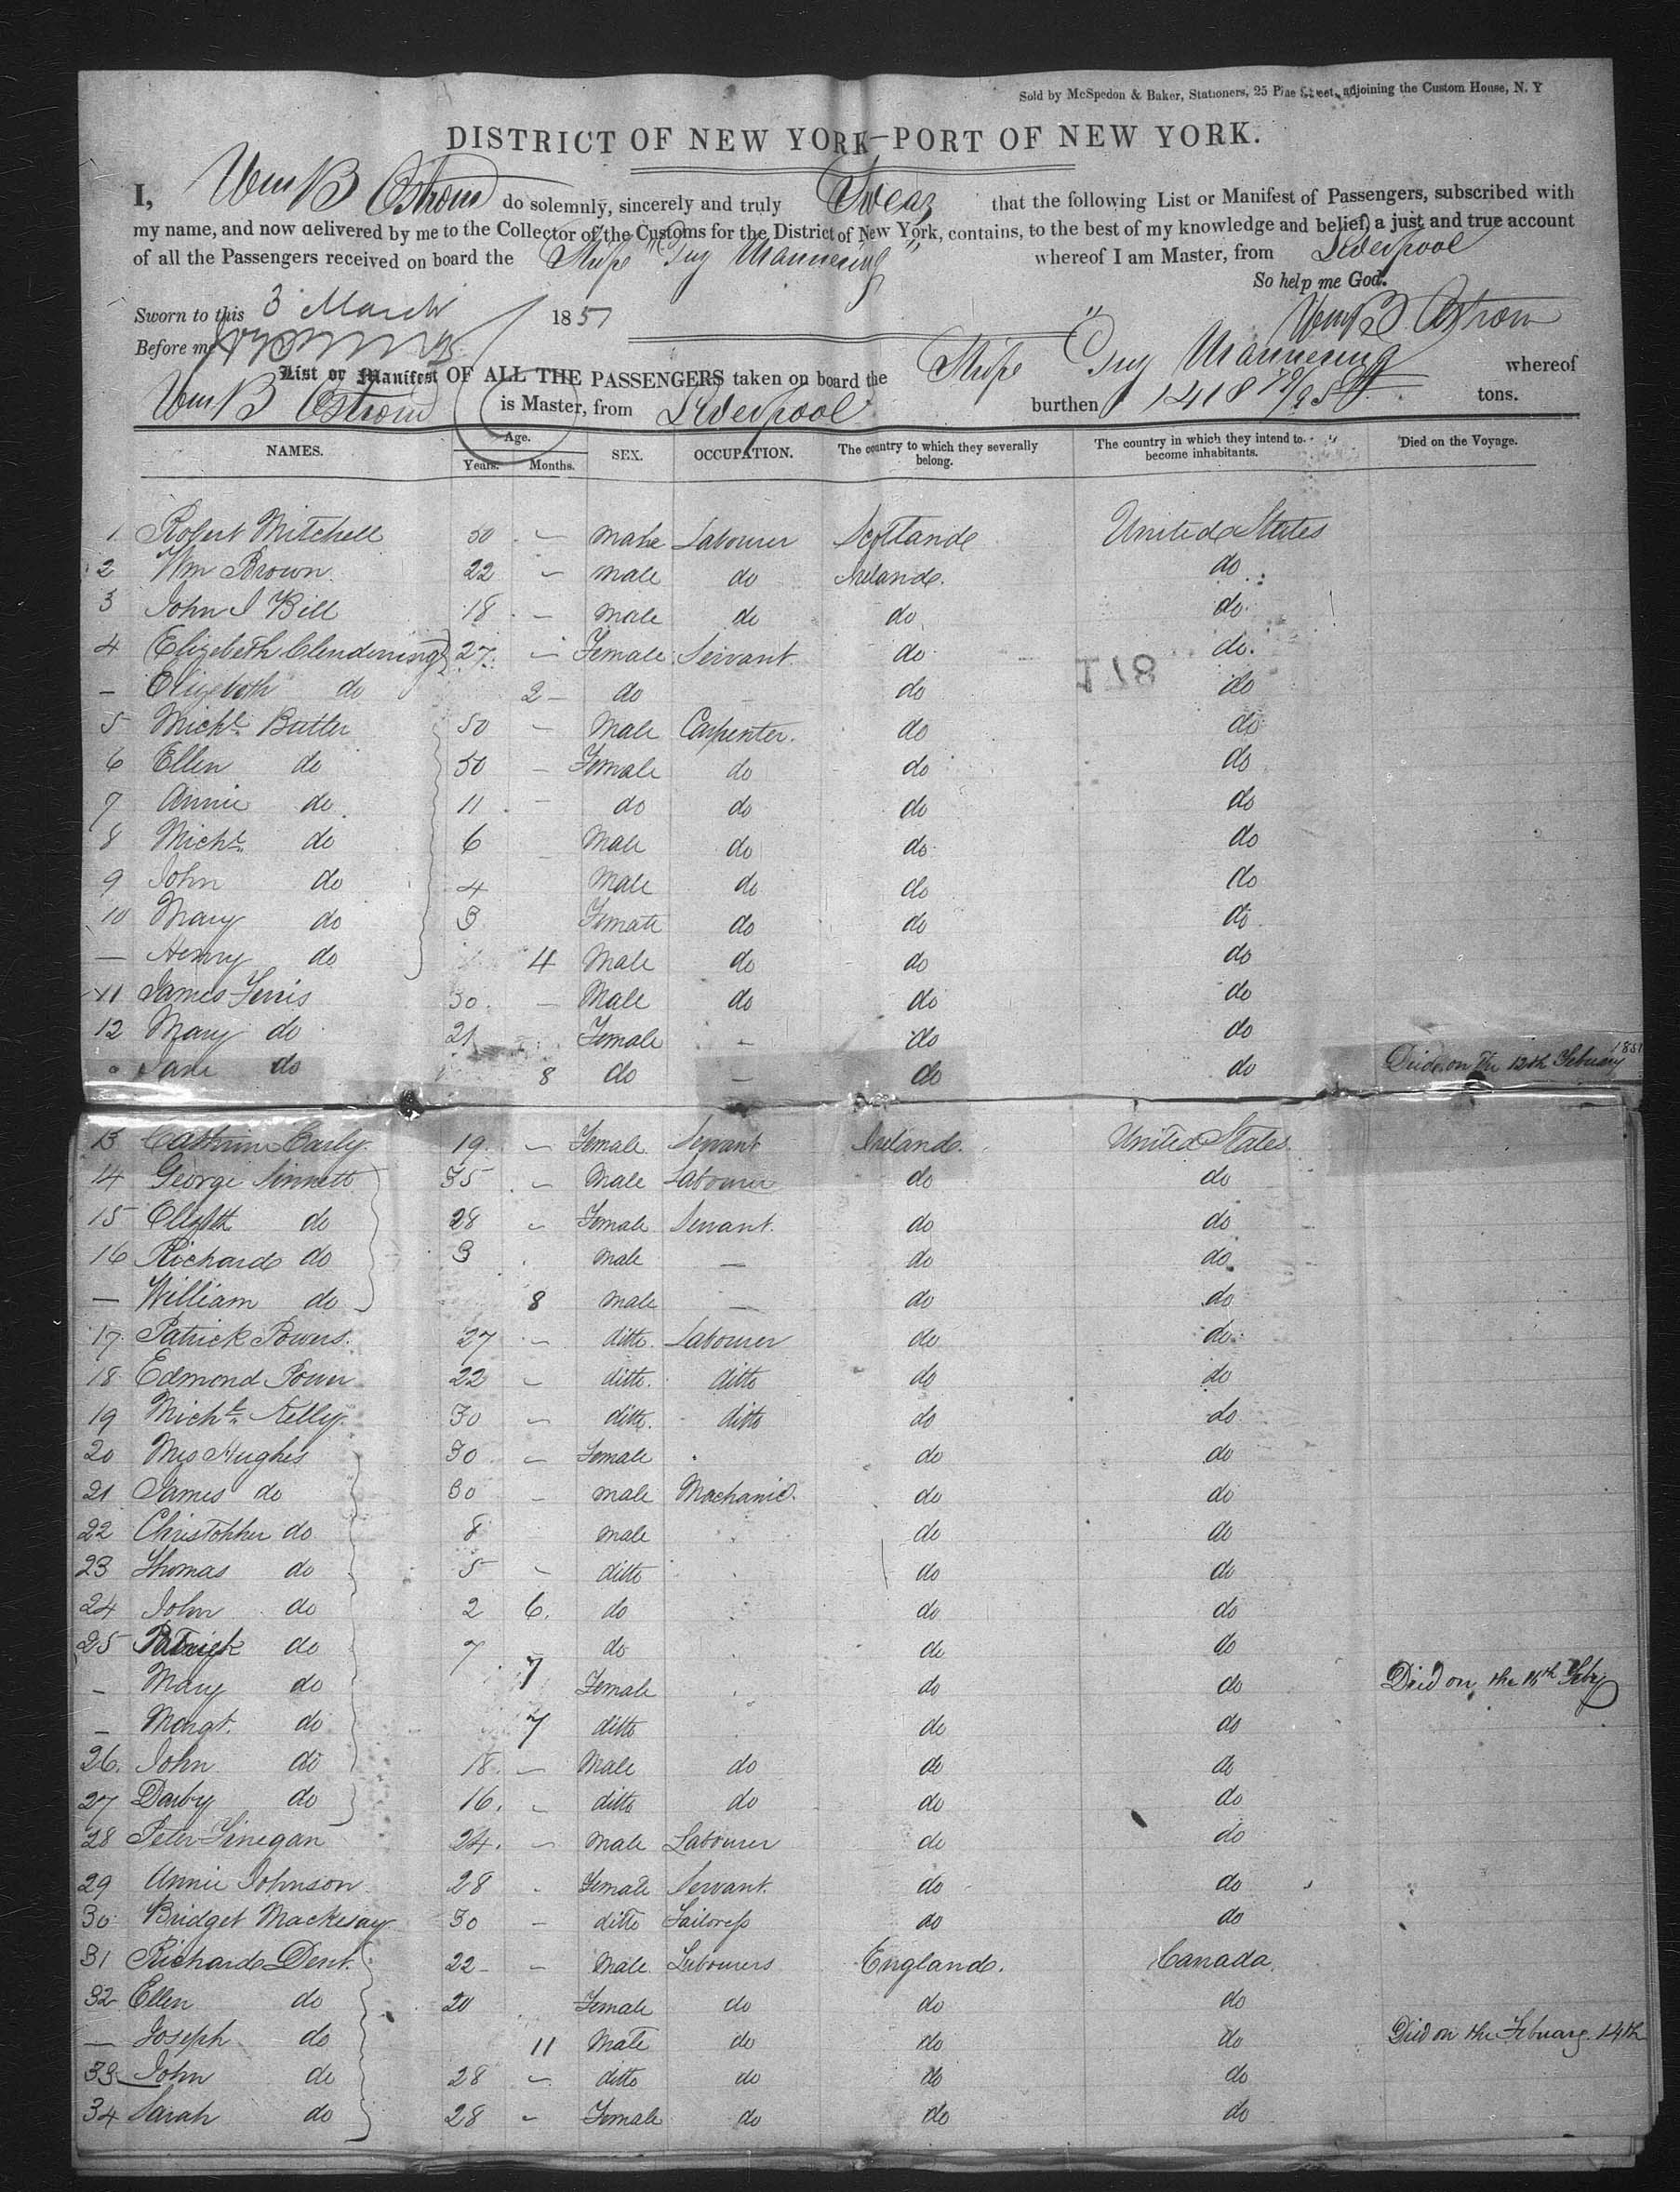 Sold by McSpedon & Baker, Stationers, 25 Pine Street, adjoining the Custom House, N. Y
DISTRICT OF NEW YORK—PORT OF NEW YORK.
I, Wm B Ostrom do solemnly, sincerely and truly Swear that the following List or Manifest of Passengers, subscribed with
my name, and now delivered by me to the Collector of the Customs for the District of New York, contains, to the best of my knowledge and belief, a just and true account
of all the Passengers received on board the Shipe "Guy Mannering" whereof I am Master, from Liverpool
So help me God.
Sworn to this 3 March 1851
Wm B. Ostrom
Before me
List or Manifest OF ALL THE PASSENGERS taken on board the Shipe "Guy Mannering whereof
Wm B Ostrom is Master, from Liverpool burthen 1418 tons.
NAMES. Age. Years. Months. SEX. OCCUPATION. The country to which they severally belong. The country in which they intend to become inhabitants. Died on the Voyage.
1 Robert Mitchell 50 – male Labourer Scotland United States
2 Wm Brown 22 – male do Ireland. do
3 John J Bill 18 – male do do do
4 Elizebeth Clendining 27 – Female Servant do do
178
– Elizebeth do 2 – do – do do
5 Michl Butler 50 – Male Carpenter. do do
6 Ellen do 50 – Female do do do
7 Annie do 11 – do do do do
8 Michl do 6 – Male do do do
9 John do 4 Male do do do
10 Mary do 3 Female do do do
– Henry do 4 Male do do do
11 James Ferris 30 – Male do do do
12 Mary do 21 Female – do do
Jane do 8 do – do do Deid on the 12th Febuary 1851
13 Cathrine Carly 19 – Female Servant Ireland. United States
14 George Sinnett 35 – Male Labourer do do
15 Elizbth do 28 – Female Servant. do do
16 Richard do 3 male – do do
– William do 8 male – do do
17 Patrick Powers. 27 – ditto Labourer do do
18 Edmond Power 22 – ditto. ditto do do
19 Michl Kelly 30 – ditto. ditto do do
20 Mrs Hughes 30 – Female do do
21 James do 30 – male Machanic. do do
22 Christopher do 8 male do do
23 Thomas do 5 – ditto do do
24 John do 2 6. do do do
25 Patrick do 7 do do do
– Mary do 7 Female do do Died on the Feby
– Margt. do 7 ditto do do
26. John do 18 – Male do do do
27 Darby do 16. – ditto do do do
28 Peter Finegan 24. – male Labourer do do
29 Annie Johnson 28 Female Servant. do do
30 Bridget Mackesay 30 – ditto Tailoress do do
31 Richard Dent. 22 – Male Labourers England. Canada
32 Ellen do 20 Female do do do
– Joseph do 11 Male do do do Died on the Febuary 14th
33 John do 28 – ditto do do do
34 Sarah do 28 – Female do do do